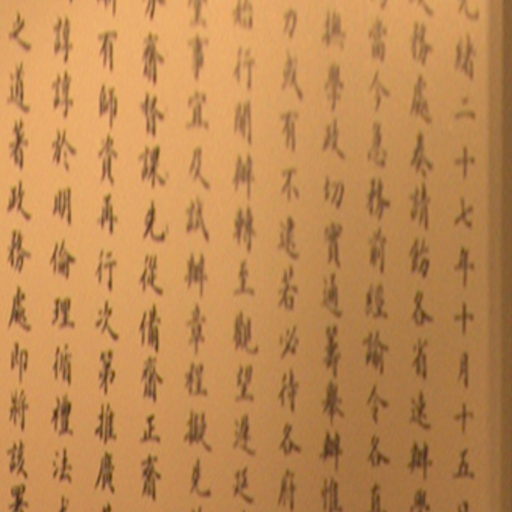 光緒二十七年十月十五日
務處奏請飭各省速辦學
當今急務前經諭令各直
撫學政切實通籌舉辦惟
力或有不逮若必待各府
始行開辦轉至觀望遷延
事宜及試辦章程擬先
齋督課先從備齋正齋
有師資再行次第推廣
諄諄於明倫理循禮法
之道著政務處即將該署